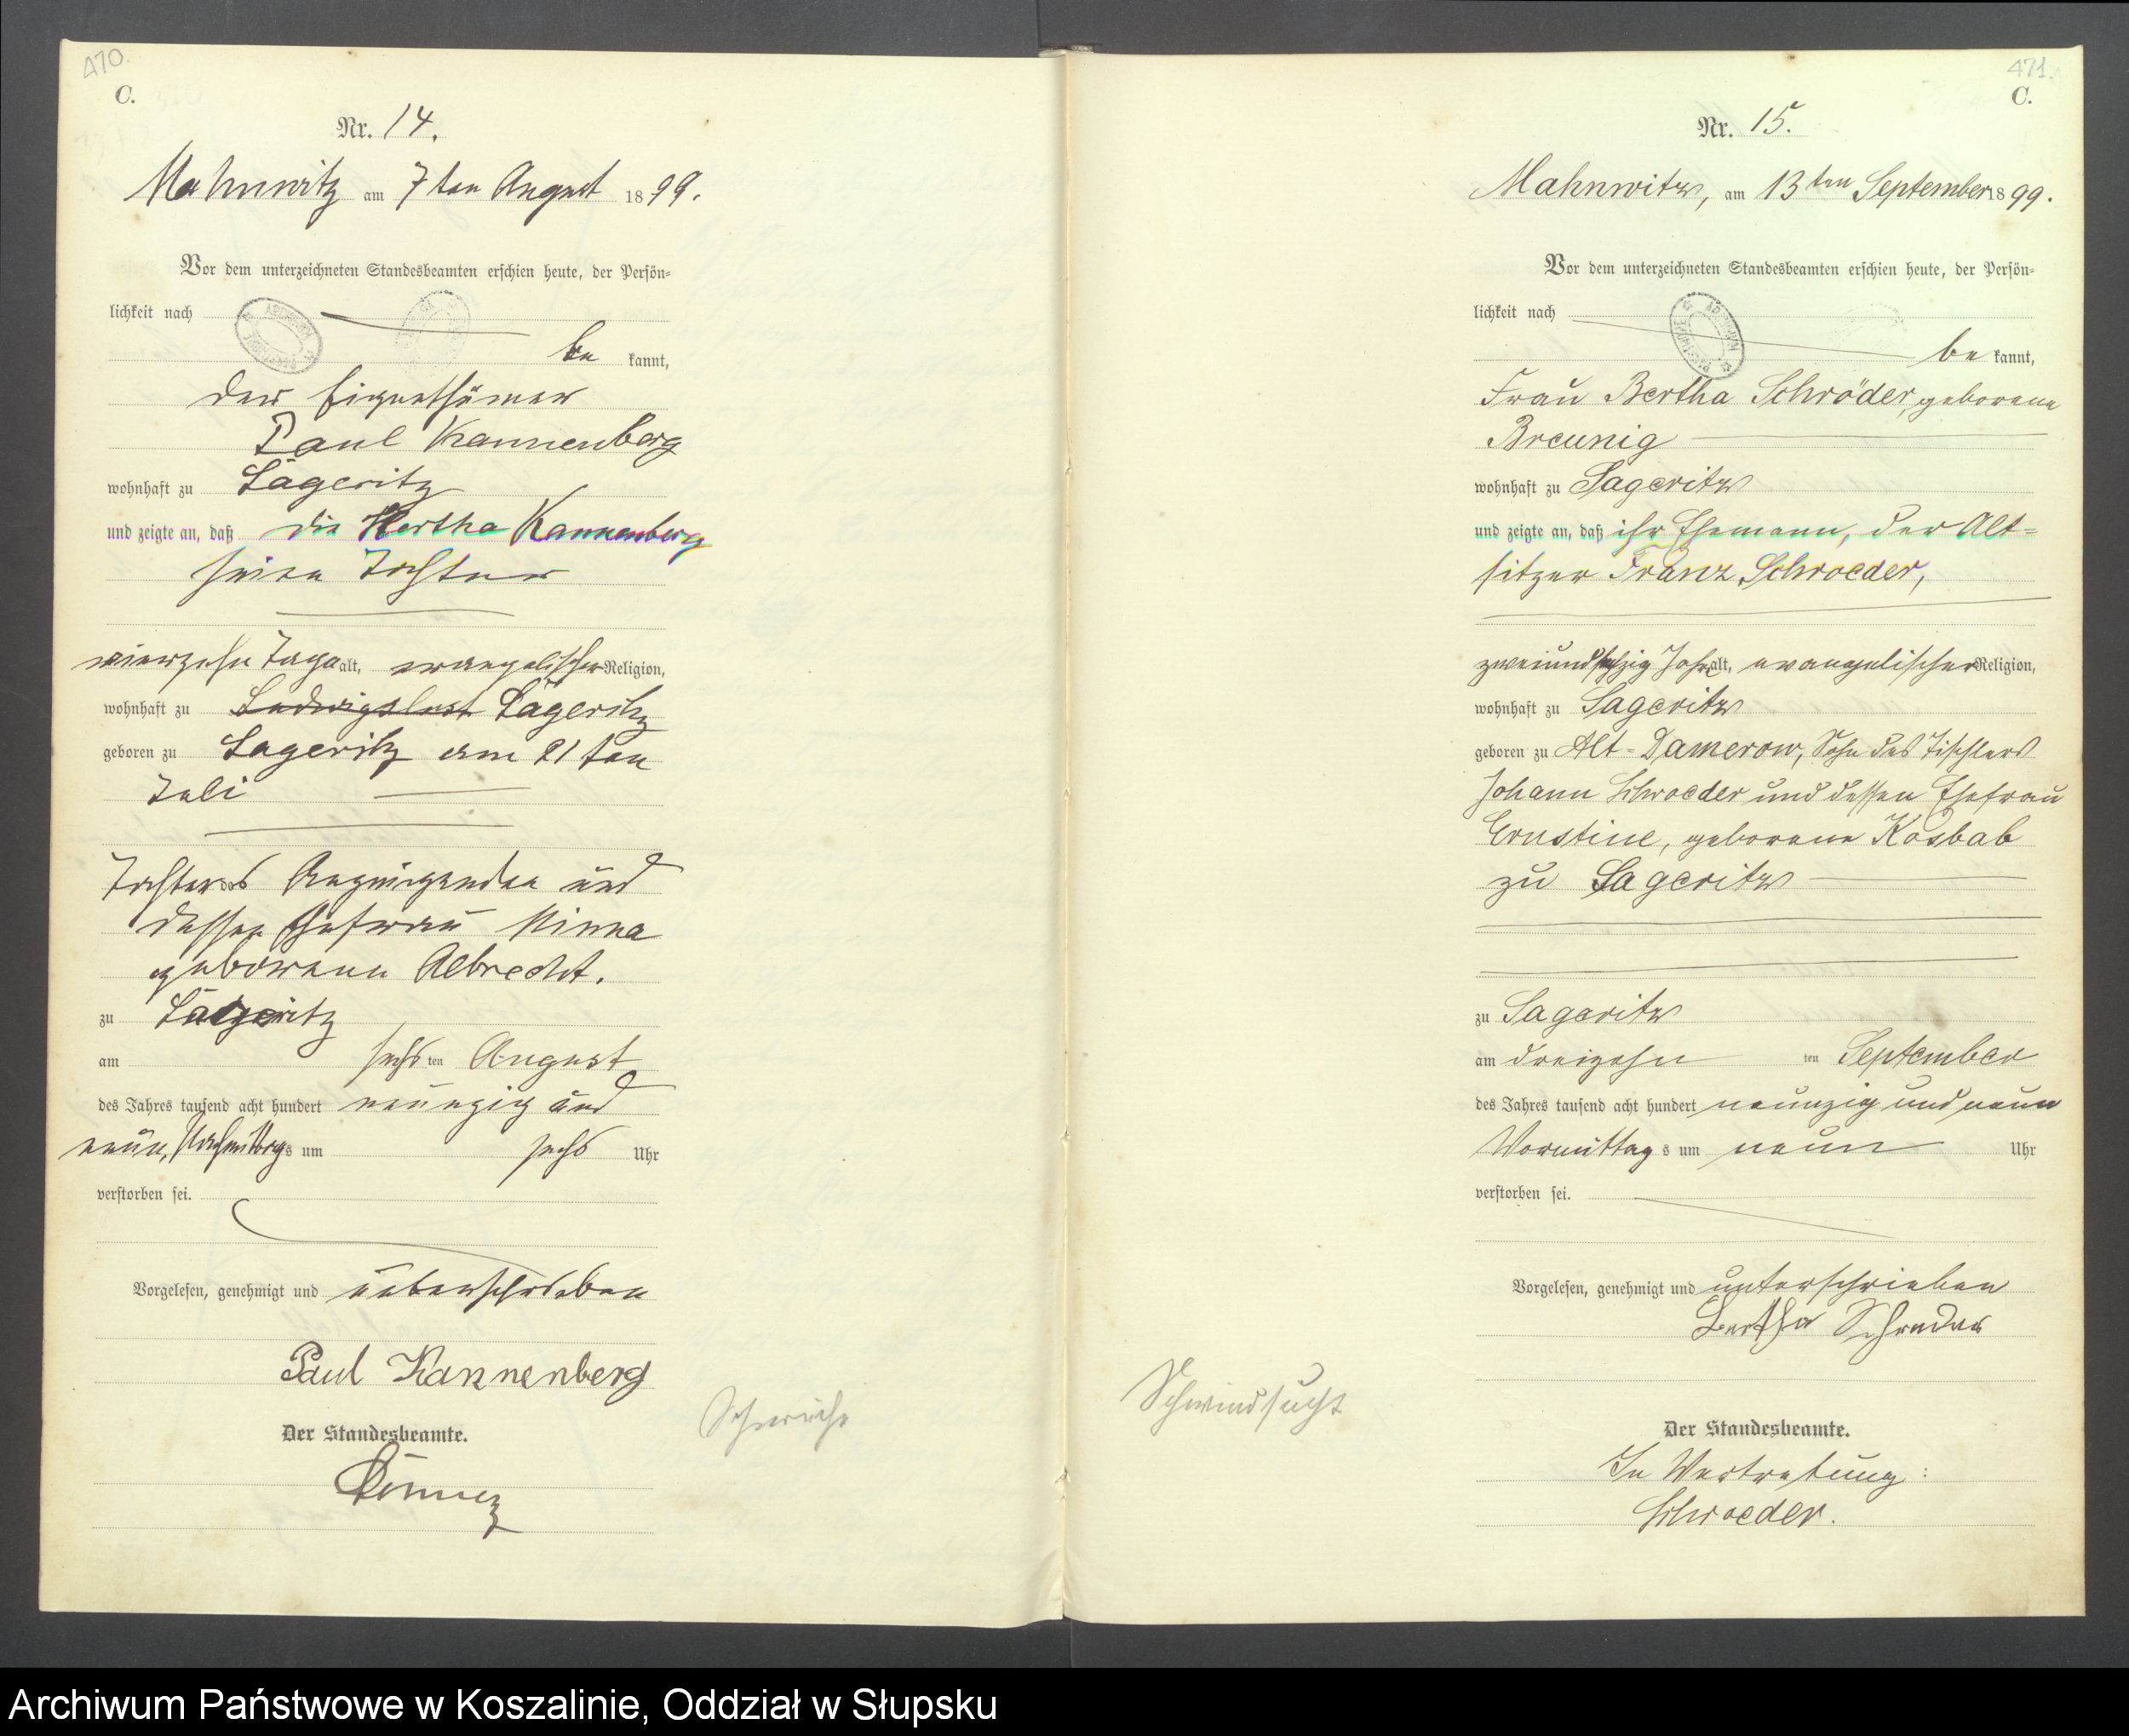 470.
C.
Nr. 14.
Mahnwitz am 7ten August 1899.
Vor dem unterzeichneten Standesbeamten erschien heute, der Persön-
lichkeit nach
be kannt,
der Eigenthümer
Paul Kannenberg
wohnhaft zu Lageritz
und zeigte an, daß die Hertha Kannenberg
seine Tochter
vierzehn Tage alt, evangelischer Religion,
wohnhaft zu Ludwigslust Lageritz
geboren zu Lageritz am 21ten
Juli
Tochter des Anzeigenden und
dessen Ehefrau Minna
geborene Albrecht.
zu Lageritz
am sechsten August
des Jahres tausend acht hundert neunzig und
neun, Nachmittags um sechs Uhr
verstorben sei.
Vorgelesen, genehmigt und unterschrieben
Paul Kannenberg
Schwäche
Der Standesbeamte.
471.
C.
Nr. 15.
Mahnwitz, am 13ten September 1899.
Vor dem unterzeichneten Standesbeamten erschien heute, der Persön-
lichkeit nach
be kannt,
Frau Bertha Schröder, geborene
Breunig
wohnhaft zu Sageritz
und zeigte an, daß ihr Ehemann, der Alt-
sitzer Franz Schroeder,
zweiundsechzig Jahre alt, evangelischer Religion,
wohnhaft zu Sageritz
geboren zu Alt-Damerow, Sohn des Tischlers
Johann Schroeder und dessen Ehefrau
Ernstine, geborene Kosbab
zu Sageritz
zu Sageritz
am dreizehn ten September
des Jahres tausend acht hundert neunzig und neun
Vormittags um neun Uhr
verstorben sei.
Vorgelesen, genehmigt und unterschrieben
Bertha Schreder
Schwindsucht
Der Standesbeamte.
In Vertretung:
Schroeder.
Archiwum Państwowe w Koszalinie, Oddział w Słupsku